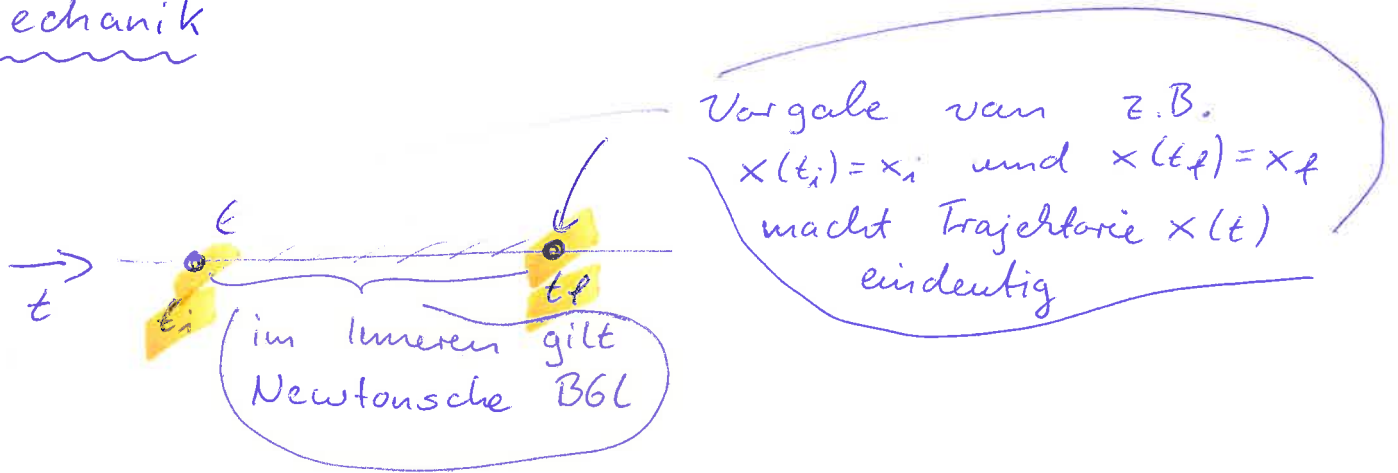 echanik
Vorgabe von z.B.
x(t_i) = x_i und x(t_f) = x_f
macht Trajektorie x(t)
eindeutig
t
t_i
t_f
im Inneren gilt
Newtonsche BGL